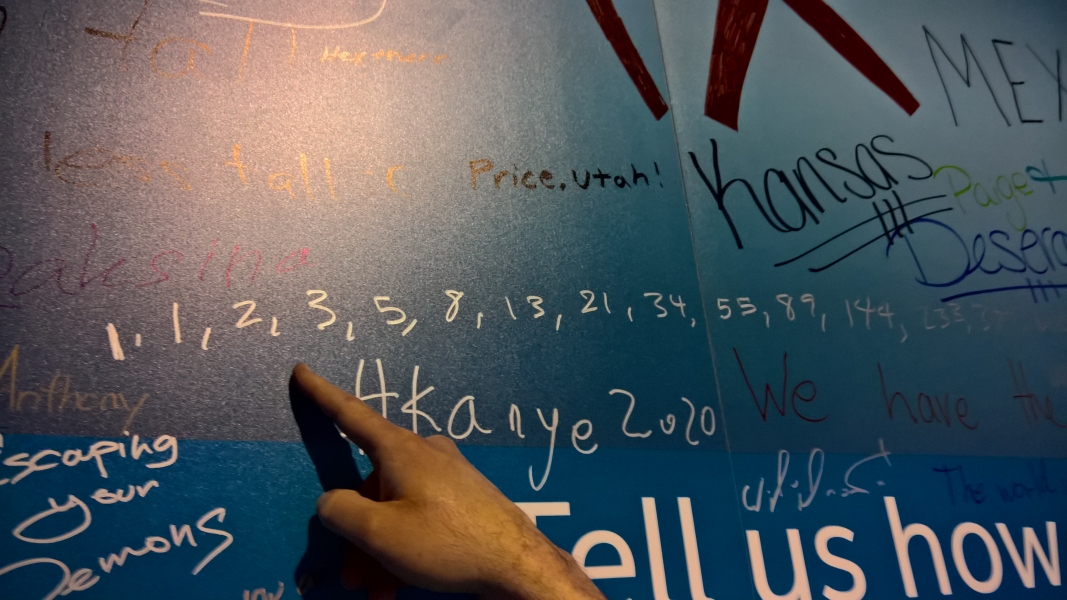 tall
MEX
less tall
Price, Utah!
Kansas
Paige +
Desere
1, 1, 2, 3, 5, 8, 13, 21, 34, 55, 89, 144, 233,
Anthony
#Kanye 2020
We have the
Escaping
your
Demons
The world
Tell us how